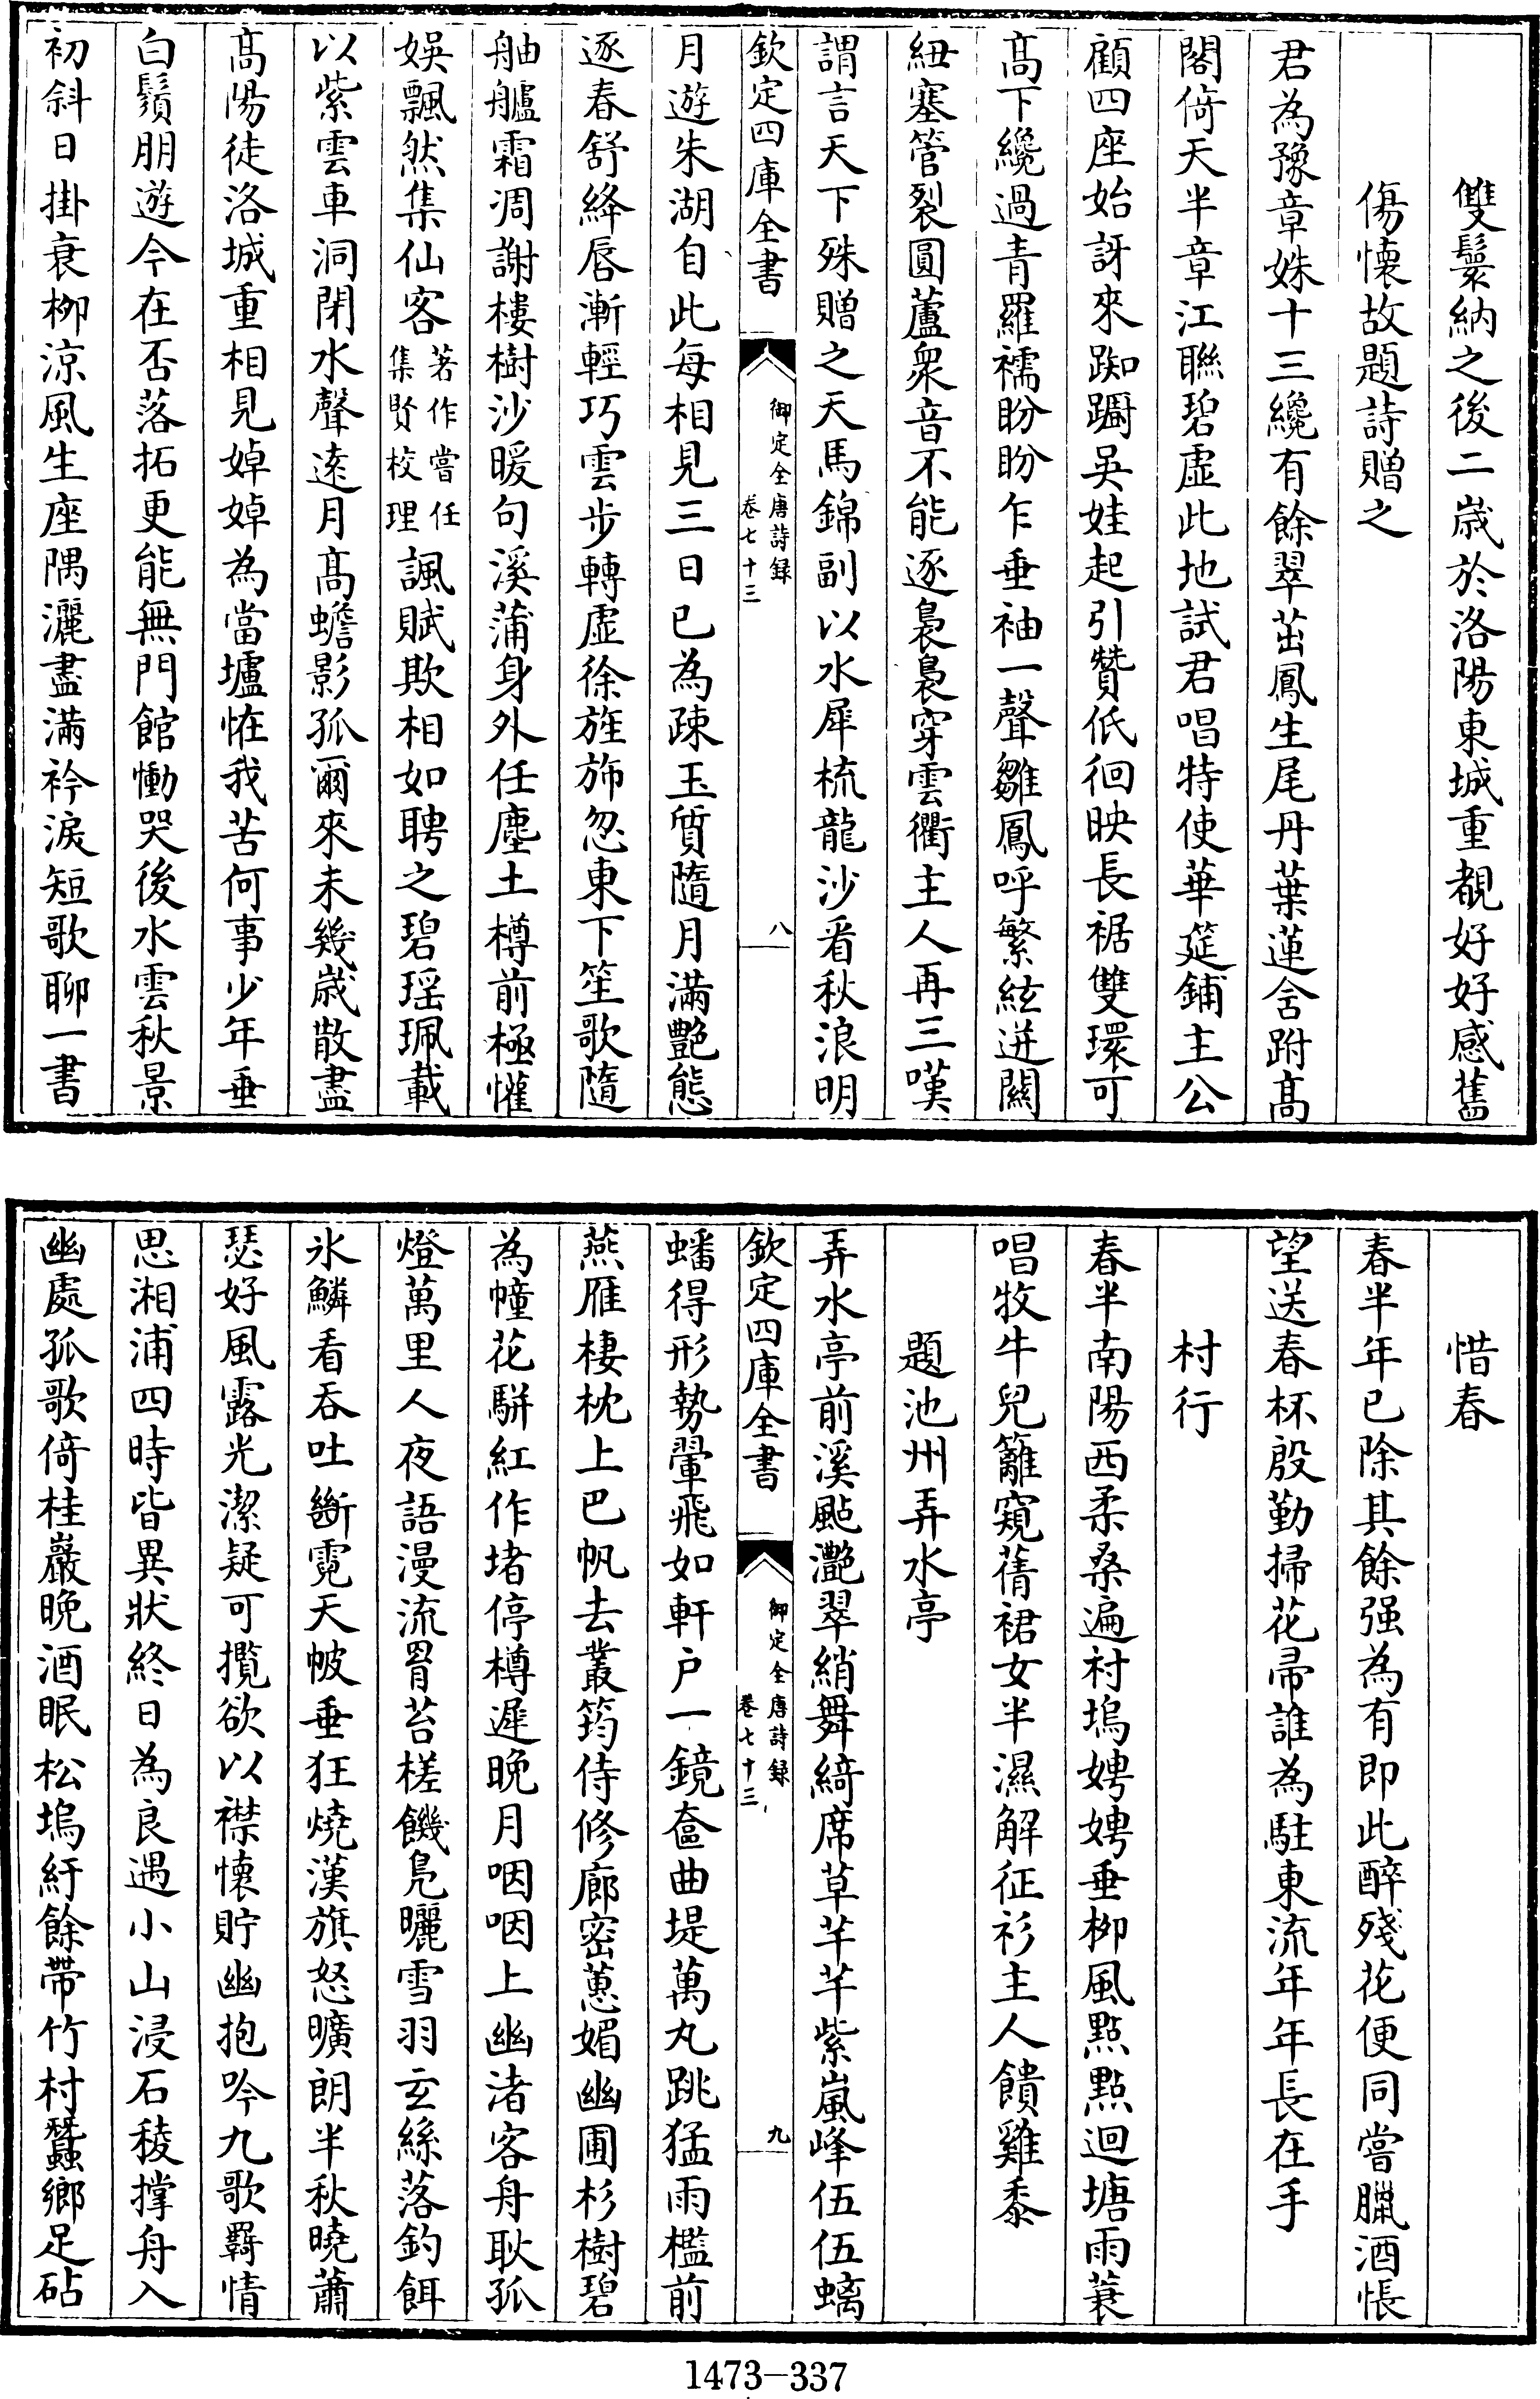 雙鬟納之後二歲於洛陽東城重覩好好感舊
傷懷故題詩贈之
君為豫章姝十三纔有餘翠茁鳳生尾丹葉蓮含跗髙
閣倚天半章江聯碧虛此地試君唱特使華筵鋪主公
顧四座始訝來踟蹰吳娃起引贊低徊映長裾雙環可
髙下纔過青羅襦盼盼乍垂袖一聲雛鳳呼繁絃迸關
紐塞管裂圓蘆衆音不能逐裊裊穿雲衢主人再三嘆
謂言天下殊贈之天馬錦副以水犀梳龍沙看秋浪明
欽定四庫全書
御定全唐詩録
卷七十三
八
月遊朱湖自此每相見三日已為疎玉質隨月滿艶態
逐春舒絳唇漸輕巧雲步轉虛徐旌斾忽東下笙歌隨
舳艫霜凋謝樓樹沙暖句溪蒲身外任塵土樽前極懽
娛飄然集仙客著作嘗任集賢校理諷賦欺相如聘之碧瑶珮載
以紫雲車洞閉水聲逺月髙蟾影孤爾來未幾歲散盡
髙陽徒洛城重相見婥婥為當壚恠我苦何事少年垂
白鬚朋遊今在否落拓更能無門館慟哭後水雲秋景
初斜日掛衰柳涼風生座隅灑盡滿衿淚短歌聊一書
惜春
春半年已除其餘强為有即此醉殘花便同嘗臘酒悵
望送春杯殷勤掃花帚誰為駐東流年年長在手
村行
春半南陽西柔桑遍村塢娉娉垂柳風點點迴塘雨蓑
唱牧牛兒籬窺蒨裙女半濕解征衫主人饋雞黍
題池州弄水亭
弄水亭前溪颭灧翠綃舞綺席草芊芊紫嵐峰伍伍螭
欽定四庫全書
御定全唐詩録
卷七十三
九
蟠得形勢翬飛如軒户一鏡奩曲堤萬丸跳猛雨檻前
燕雁棲枕上巴帆去叢筠侍修廊密蕙媚幽圃杉樹碧
為幢花駢紅作堵停樽遲晚月咽咽上幽渚客舟耿孤
燈萬里人夜語漫流罥苔槎饑鳬曬雪羽玄絲落釣餌
氷鱗看吞吐斷霓天帔垂狂燒漢旗怒曠朗半秋曉蕭
瑟好風露光潔疑可攬欲以襟懷貯幽抱吟九歌羇情
思湘浦四時皆異狀終日為良遇小山浸石稜撑舟入
幽處孤歌倚桂巖晚酒眠松塢紆餘帶竹村蠶鄉足砧
1473-337